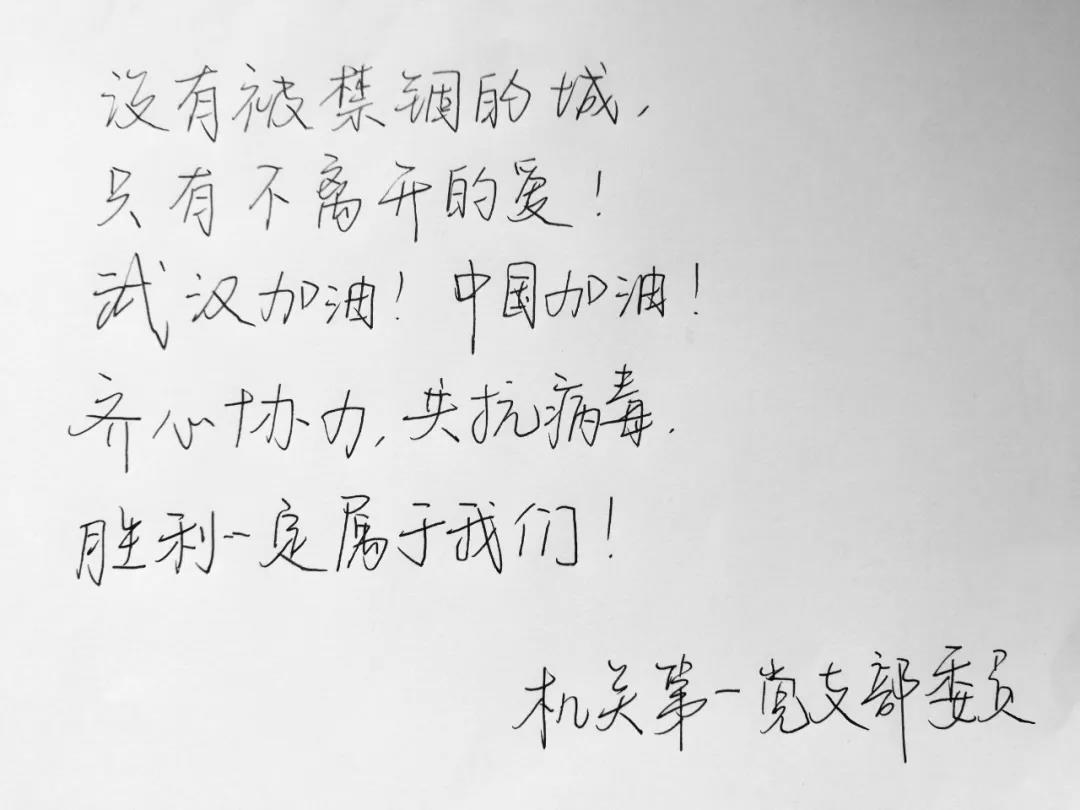 没有被禁锢的城，
只有不离开的爱！
武汉加油！中国加油！
齐心协力，共抗病毒.
胜利一定属于我们！
机关第一党支部委员